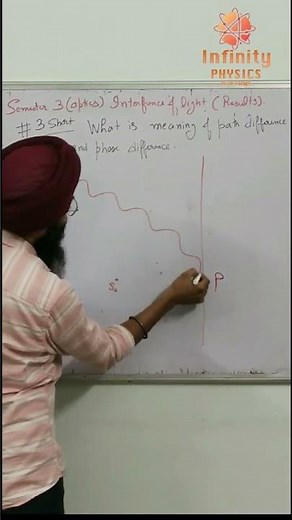 Infinity
PHYSICS
Semester 3 (optics) Interference of light (Results).
# 3 Short What is meaning of path difference
and phase difference.
S₂
P